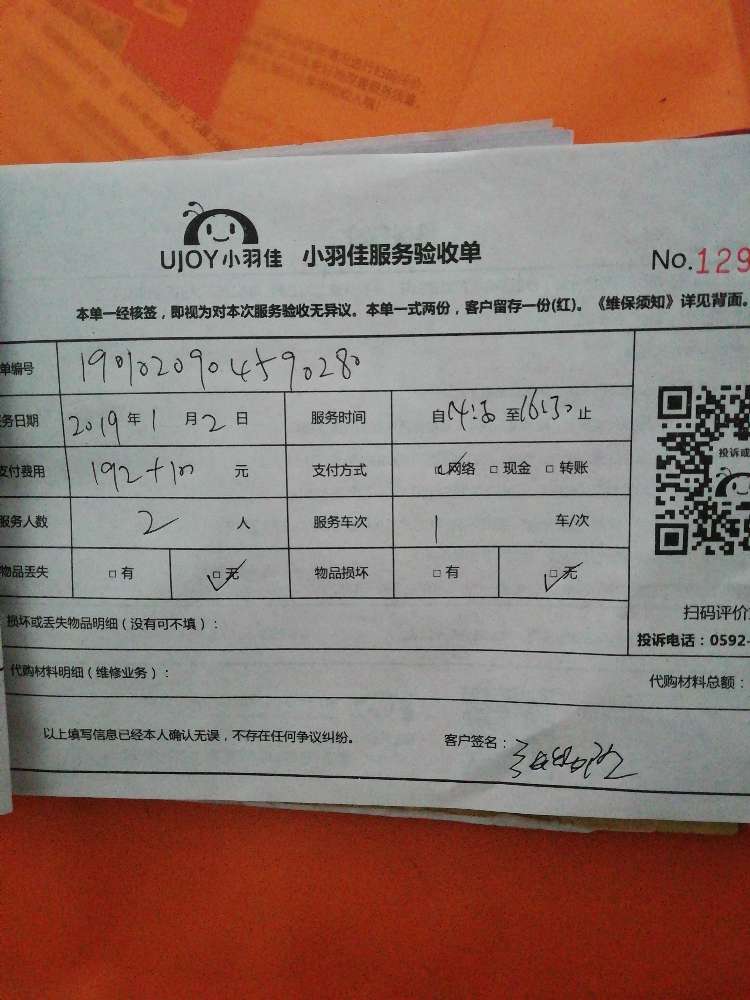 UJOY小羽佳 小羽佳服务验收单 No.129
本单一经核签，即视为对本次服务验收无异议。本单一式两份，客户留存一份(红)。《维保须知》详见背面。
单编号 1901020904590280
务日期 2019年1月2日 服务时间 自14:30至16:30止
支付费用 192+100元 支付方式 ☑网络 □现金 □转账
服务人数 2人 服务车次 1车/次
物品丢失 □有 ☑无 物品损坏 □有 ☑无
投诉或
扫码评价
投诉电话：0592-
损坏或丢失物品明细（没有可不填）：
代购材料明细（维修业务）： 代购材料总额：
以上填写信息已经本人确认无误，不存在任何争议纠纷。 客户签名：